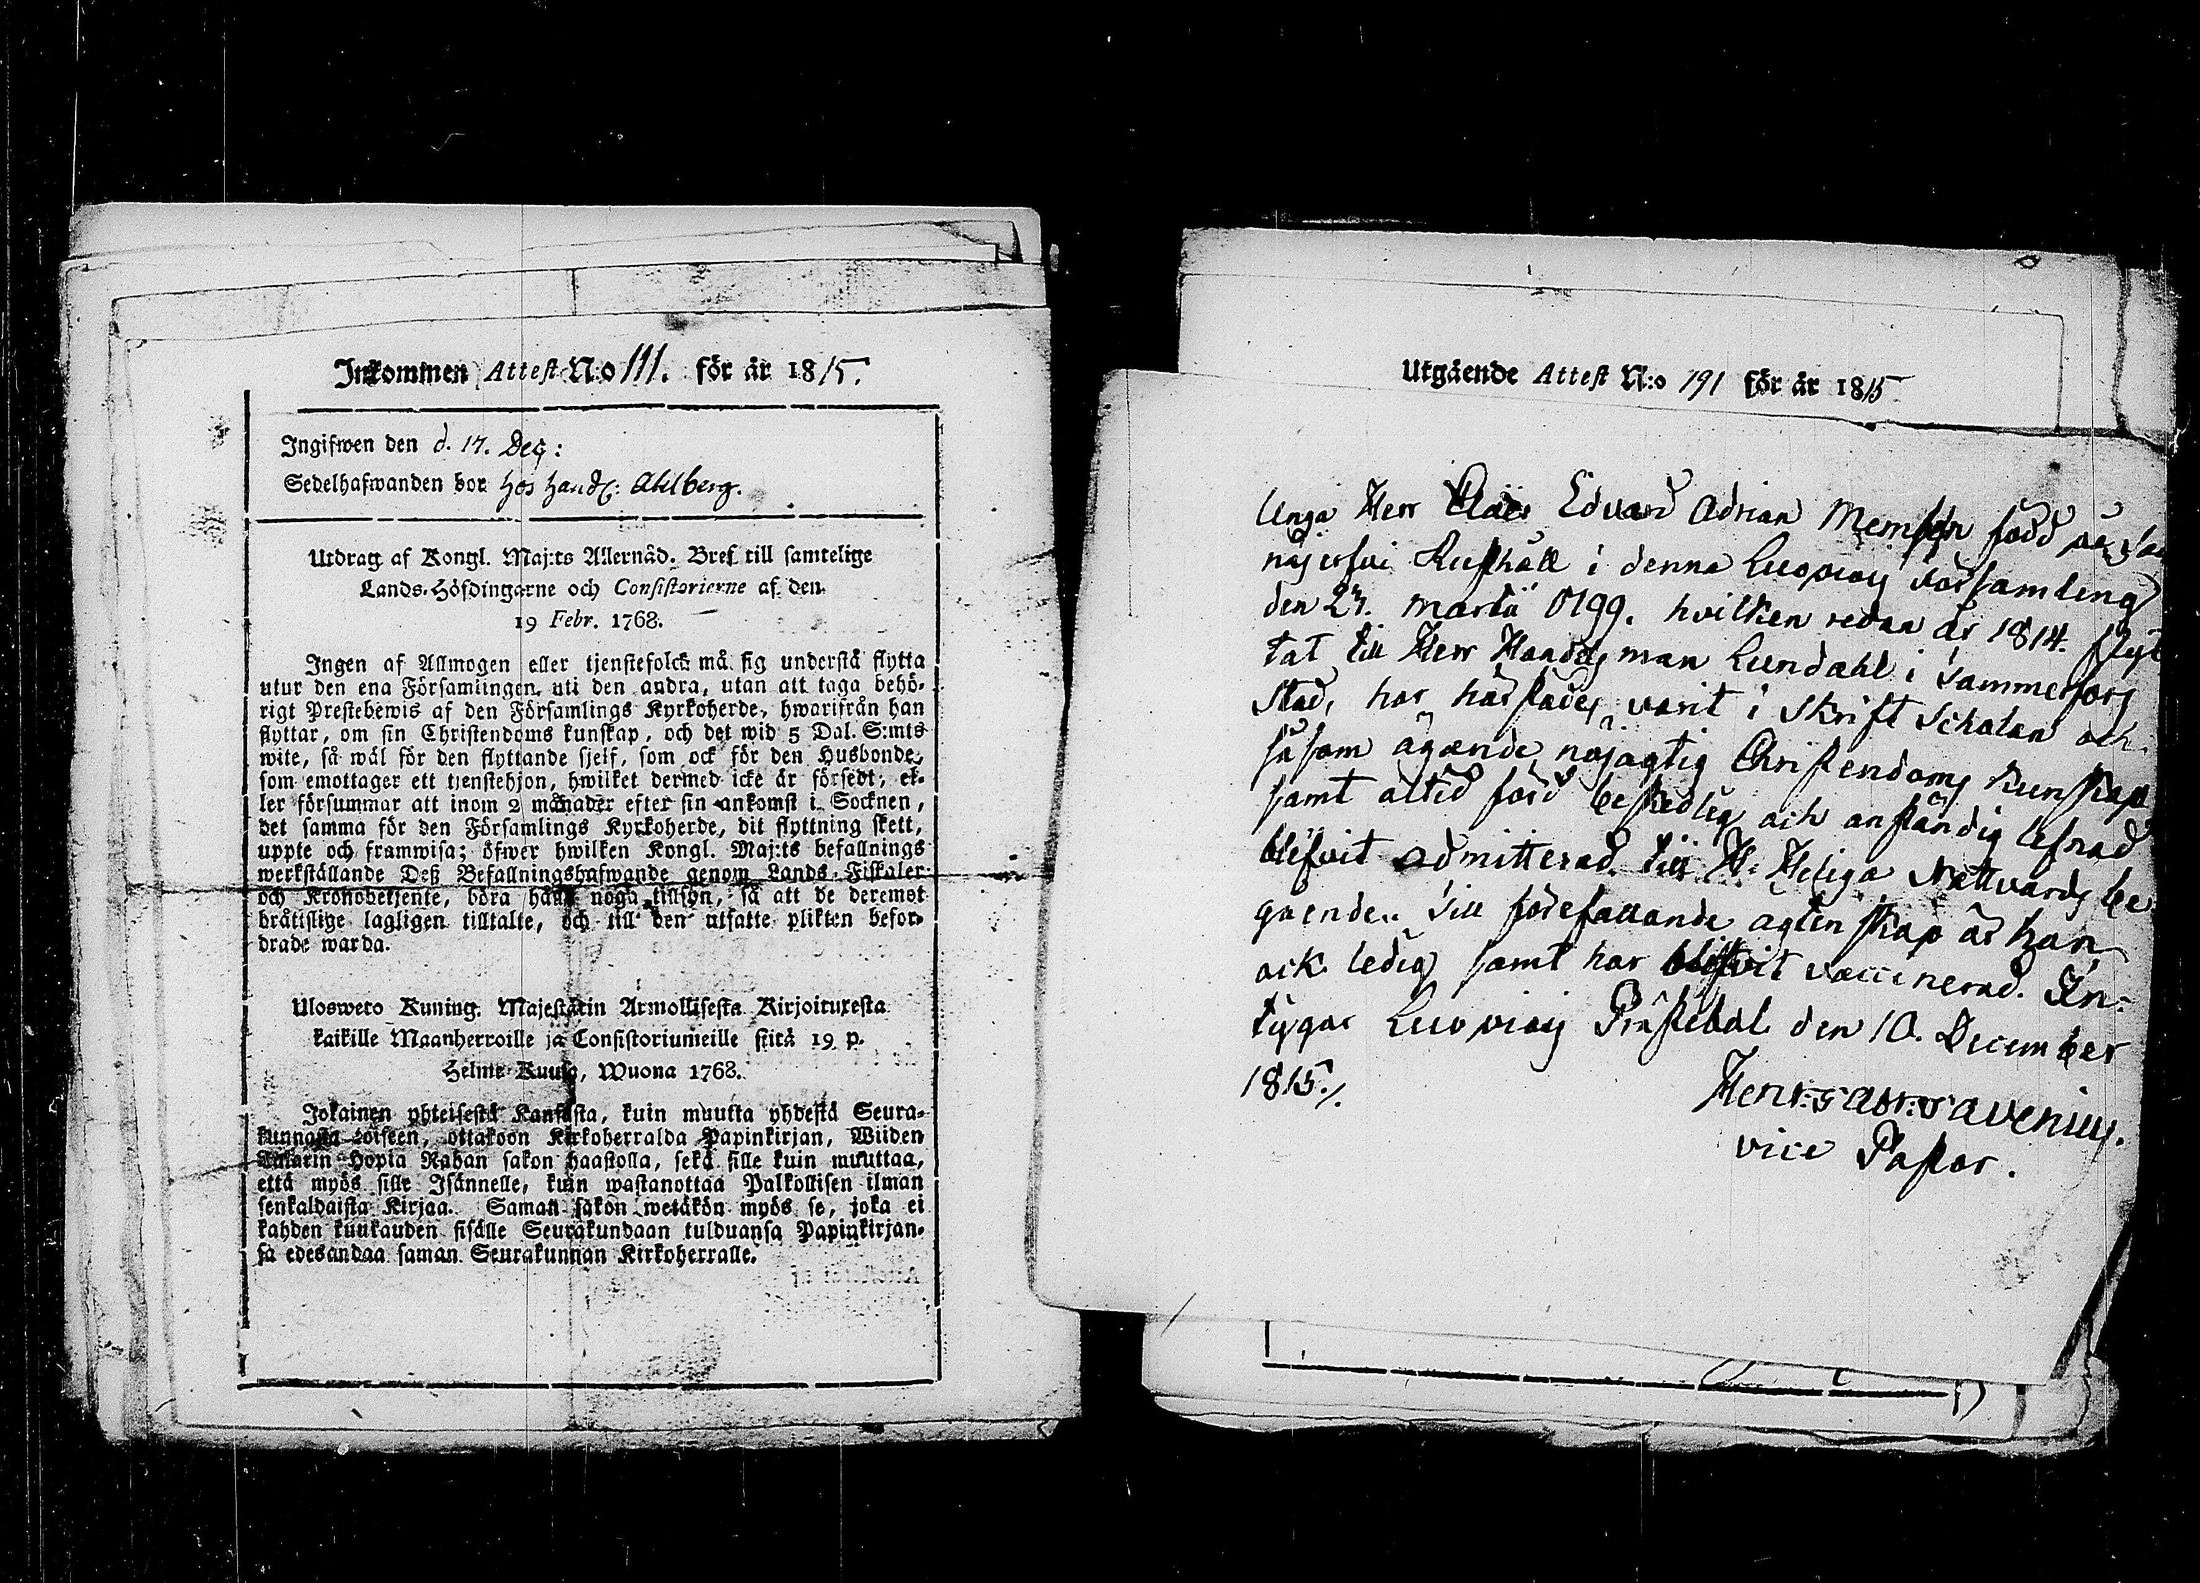 Inkommen Attest N:o 111. för år 1815.
Ingifwen den d. 17. Dec:
Sedelhafwanden bor hos Handl: Ahlberg.
Utdrag af Kongl. Maj:ts Allernåd. Bref till samtelige
Lands-Höfdingarne och Consistorierne af den
19 Febr. 1768.
Ingen af Allmogen eller tjenstefolck må sig understå flytta
utur den ena Församlingen uti den andra, utan att taga behö-
rigt Prestebewis af den Församlings Kyrkoherde, hwarifrån han
flyttar, om sin Christendoms kunskap, och det wid 5 Dal. S:mts
wite, så wäl för den flyttande sjelf, som ock för den Husbonde,
som emottager ett tjenstehjon, hwilket dermed icke är försedt, el-
ler försummar att inom 2 månader efter sin ankomst i Socknen,
det samma för den Församlings Kyrkoherde, dit flyttning skett,
uppte och framwisa; öfwer hwilken Kongl. Maj:ts befallnings
werkställande Deß Befallningshafwande genom Lands-Fiskaler
och Kronobetjente, böra hålla noga tillsyn, så att de deremot
bråtislige lagligen tilltalte, och till den utsatte plikten befor-
drade warda.
Ulosweto Kuning. Majestätin Armollisesta Kirjoituxesta
kaikille Maanherroille ja Consistoriumeille siitä 19 p.
Helme-Kuusa, Wuona 1768.
Jokainen yhteisestä Kansasta, kuin muutta yhdestä Seura-
kunnasta toiseen, ottakoon Kirkoherralda Papinkirjan, Wiiden
Talarin Hopia Rahan sakon haastolla, sekä sille kuin muuttaa,
että myös sille Isännelle, kuin wastanottaa Palkollisen ilman
senkaldaista Kirjaa. Saman sakon wetäkön myös se, joka ei
kahden kuukauden sisälle Seurakundaan tulduansa Papinkirjan-
sa edesandaa saman Seurakunnan Kirkoherralle.
Utgående Attest N:o 191 för år 1815
Unga Herr Claes Edvard Adrian Memsén född på
Rusthåll i denna Luopiois Församling
den 23. Martii 1799. hvilken redan år 1814. flyt
tat till Herr Handelsman Lundahl i Tammerfors
Stad, har härstädes varit i Skrift Scholan och
såsom ägande nöjagtig Christendoms Kunskap
samt altid förd beskedlig och anständig lefnad
blifvit admitterad till H. Heliga Nattvards be
gående. Till förefallande ägtenskap är han
ock ledig samt har blifvit vaccinerad. In-
tygar Luopiois Prästebol den 10. December
1815./.
Henr:s Abr:s Avenius.
vice Pastor.